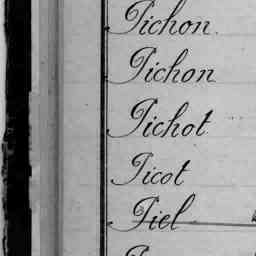 Pichon
Pichon
Pichot
Picot
Piel